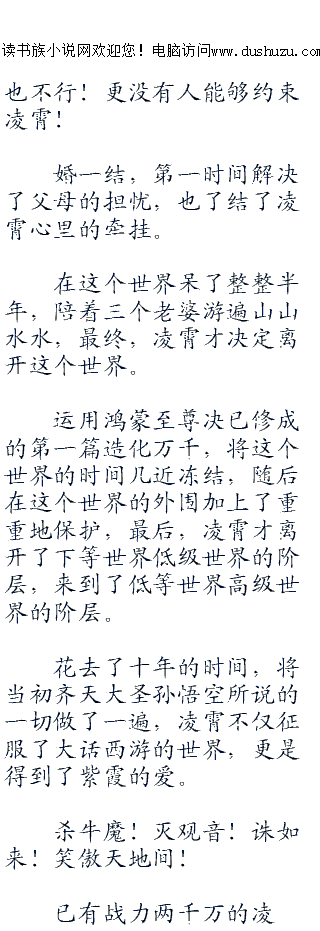 读书族小说网欢迎您！电脑访问www.dushuzu.com
也不行！更没有人能够约束
凌霄！
婚一结，第一时间解决
了父母的担忧，也了结了凌
霄心里的牵挂。
在这个世界呆了整整半
年，陪着三个老婆游遍山山
水水，最终，凌霄才决定离
开这个世界。
运用鸿蒙至尊决已修成
的第一篇造化万千，将这个
世界的时间几近冻结，随后
在这个世界的外围加上了重
重地保护，最后，凌霄才离
开了下等世界低级世界的阶
层，来到了低等世界高级世
界的阶层。
花去了十年的时间，将
当初齐天大圣孙悟空所说的
一切做了一遍，凌霄不仅征
服了大话西游的世界，更是
得到了紫霞的爱。
杀牛魔！灭观音！诛如
来！笑傲天地间！
已有战力两千万的凌